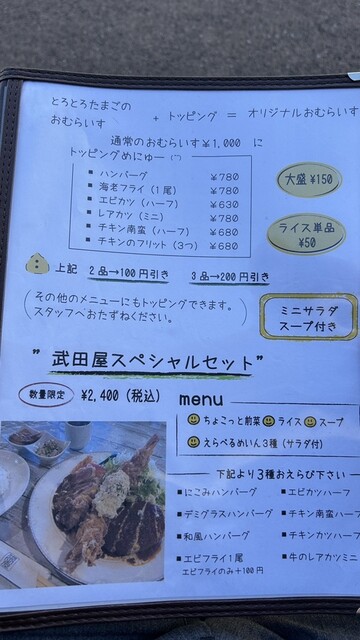 とろとろたまごの
おむらいす + トッピング = オリジナルおむらいす
通常のおむらいす¥1,000 に
トッピングめにゅー
■ ハンバーグ ¥780
■ 海老フライ(1尾) ¥780
■ エビカツ(ハーフ) ¥630
■ レアカツ(ミニ) ¥780
■ チキン南蛮(ハーフ) ¥680
■ チキンのフリット(3つ) ¥680
大盛 ¥150
ライス単品
¥50
上記 2品→100円引き 3品→200円引き
(その他のメニューにもトッピングできます。
スタッフへおたずねください。)
ミニサラダ
スープ付き
"武田屋スペシャルセット"
数量限定 ¥2,400(税込)
menu
ちょこっと前菜 ライス スープ
えらべるめいん3種(サラダ付)
下記より3種おえらび下さい
■にこみハンバーグ ■エビカツハーフ
■デミグラスハンバーグ ■チキン南蛮ハーフ
■和風ハンバーグ ■チキンカツハーフ
■エビフライ1尾 ■牛のレアカツミニ
エビフライのみ+100円